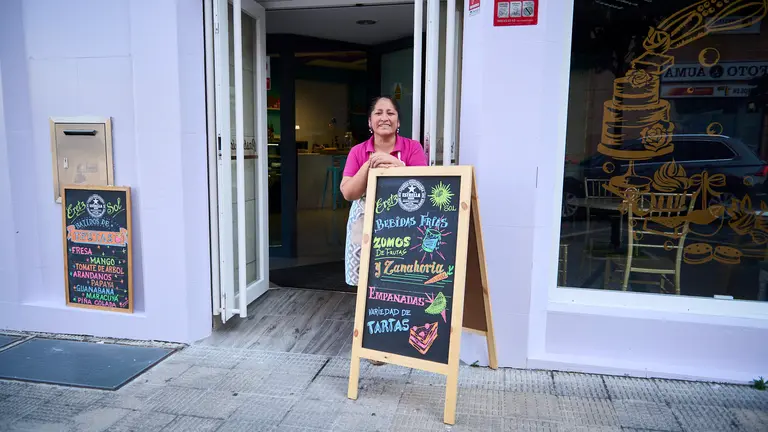 Eret's Sol
BATIDOS DE
FRESA
MANGO
TOMATE DE ARBOL
ARANDANOS
PAPAYA
GUANABANA
MARACUYA
PIÑA COLADA
ESTRELLA
Eret's Sol
BEBIDAS FRIAS
ZUMOS
DE FRUTAS
Y Zanahoria
EMPANADAS
VARIEDAD DE
TARTAS
FOTO GAUMA